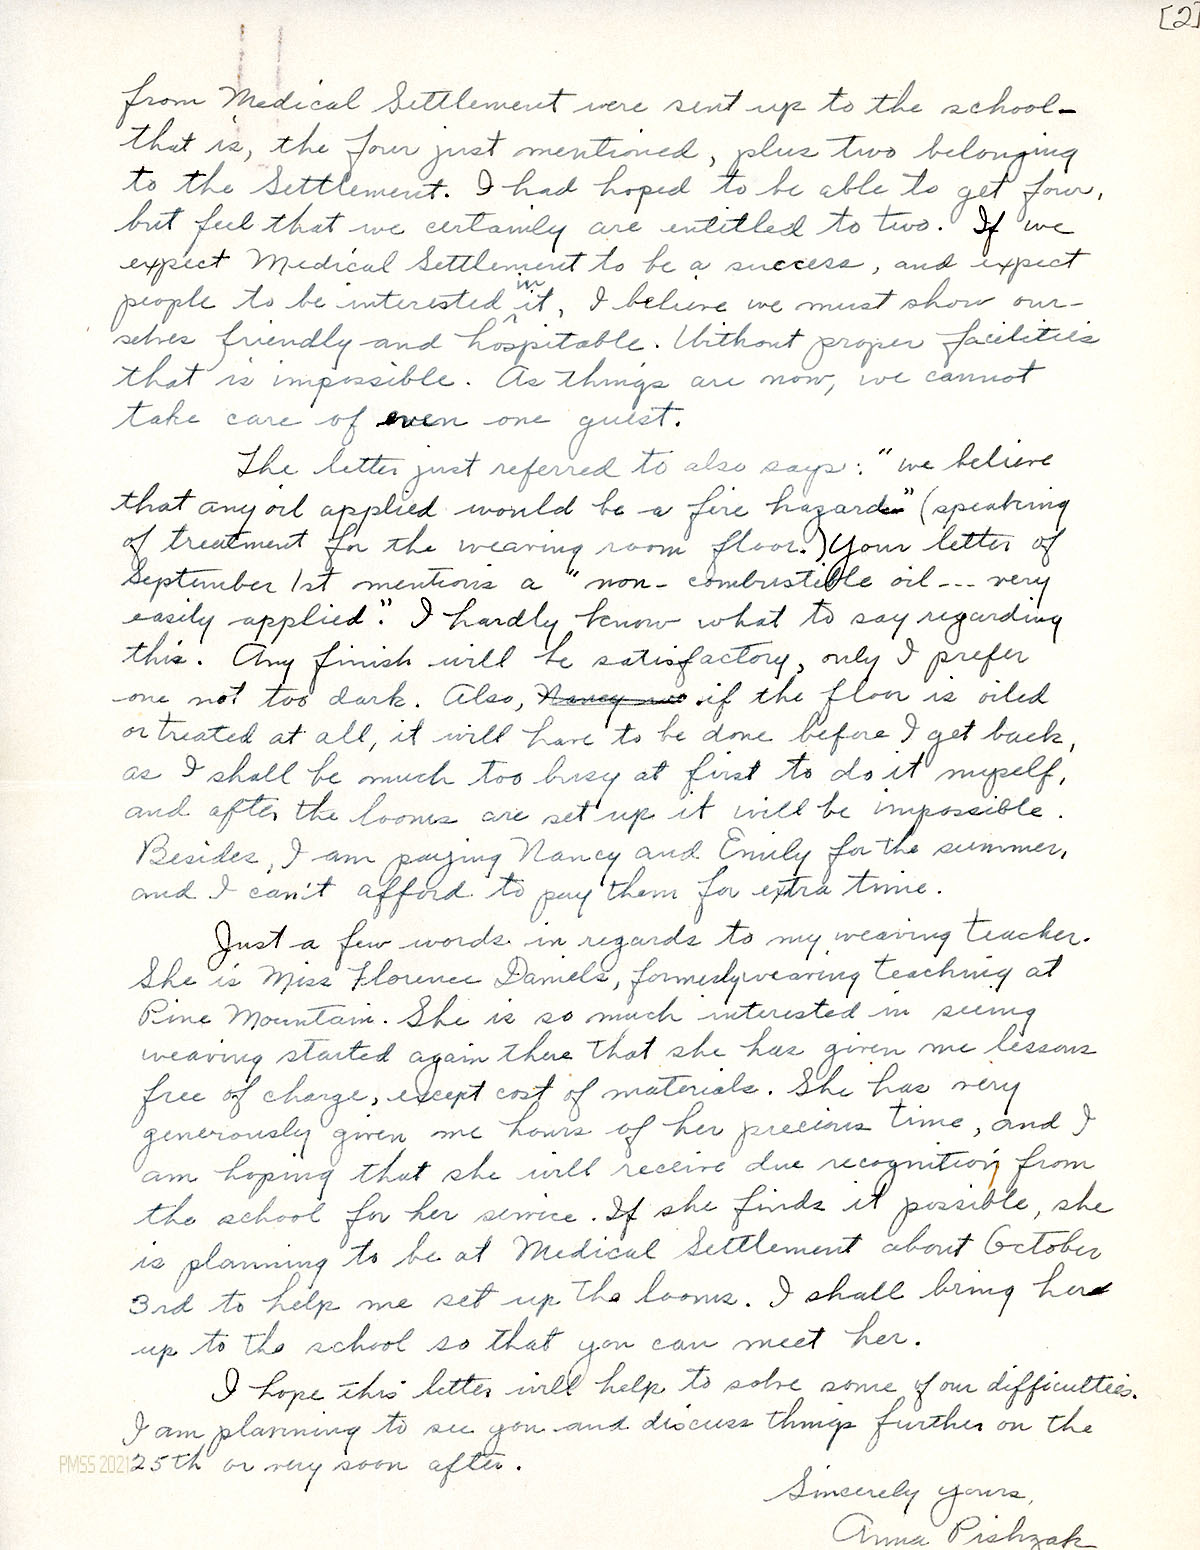 [2]
from Medical Settlement were sent up to the school-
that is, the four just mentioned, plus two belonging
to the Settlement. I had hoped to be able to get four,
but feel that we certainly are entitled to two. If we
expect Medical Settlement to be a success, and expect
people to be interested in it, I believe we must show our-
selves friendly and hospitable. Without proper facilities
that is impossible. As things are now, we cannot
take care of even one guest.
The letter just referred to also says: "we believe
that any oil applied would be a fire hazard" (speaking
of treatment for the weaving room floor.) Your letter of
September 1st mentions a "non-combustible oil --- very
easily applied". I hardly know what to say regarding
this. Any finish will be satisfactory, only I prefer
one not too dark. Also, Nancy if the floor is oiled
or treated at all, it will have to be done before I get back,
as I shall be much too busy at first to do it myself,
and after the looms are set up it will be impossible.
Besides, I am paying Nancy and Emily for the summer,
and I can't afford to pay them for extra time.
Just a few words in regards to my weaving teacher.
She is Miss Florence Daniels, formerly weaving teaching at
Pine Mountain. She is so much interested in seeing
weaving started again there that she has given me lessons
free of charge, except cost of materials. She has very
generously given me hours of her precious time, and I
am hoping that she will receive due recognition from
the school for her service. If she finds it possible, she
is planning to be at Medical Settlement about October
3rd to help me set up the looms. I shall bring her
up to the school so that you can meet her.
I hope this letter will help to solve some of our difficulties.
I am planning to see you and discuss things further on the
25th or very soon after.
PMSS 2021
Sincerely yours,
Anna Pishzak